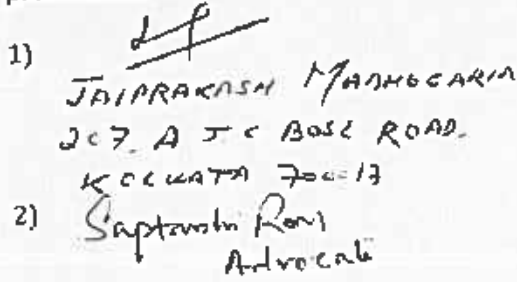 1)
JAIPRAKASH MADHOGARIA
207. A J C BOSE ROAD.
KOLKATA 700017
2) Saptarshi Roy
Advocate